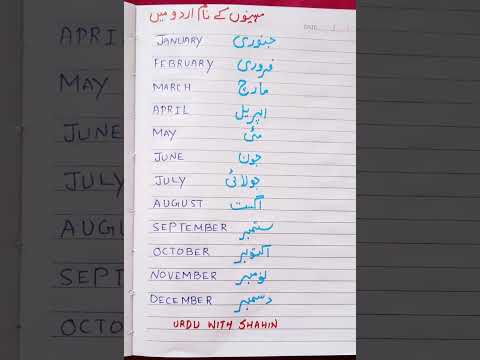 مہینوں کے نام اردو میں
DATE
JANUARY جنوری
FEBRUARY فروری
MARCH مارچ
APRIL اپریل
MAY مئی
JUNE جون
JULY جولائی
AUGUST اگست
SEPTEMBER ستمبر
OCTOBER اکتوبر
NOVEMBER نومبر
DECEMBER دسمبر
URDU WITH SHAHIN
APRIL
MAY
JUNE
JULY
AUGUST
SEPT
OCTO